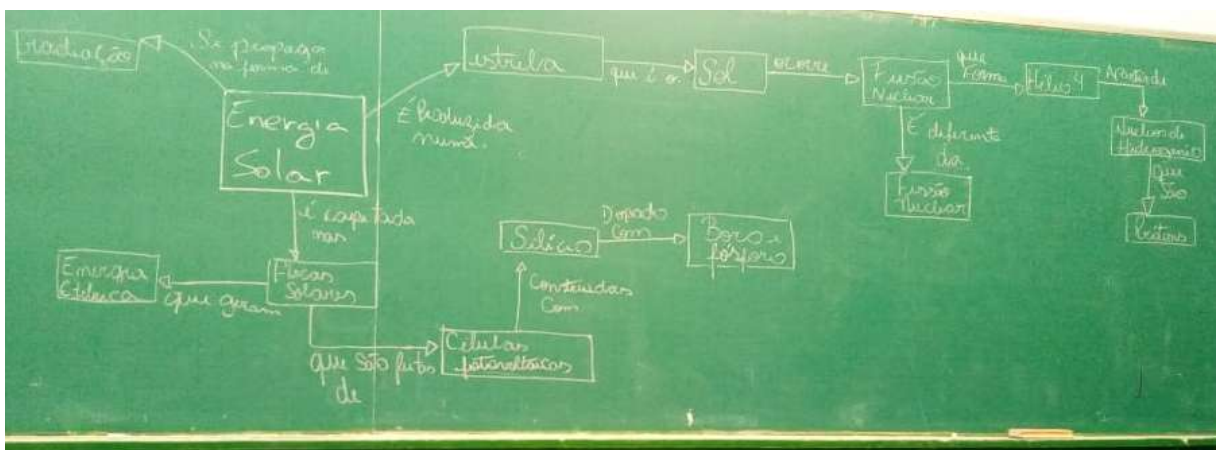 Irradiação
Se propaga
na forma de
Energia
Solar
É Produzida
numa
estrela
que é o
Sol
ocorre
Fusão
Nuclear
que
Forma
Hélio 4
A partir de
Núcleos de
Hidrogênio
que
são
Prótons
É diferente
da
Fissão
Nuclear
é captada
nas
Placas
Solares
que geram
Energia
Elétrica
que são feitas
de
Células
fotovoltaicas
Construídas
Com
Silício
Dopado
Com
Boro e
fósforo